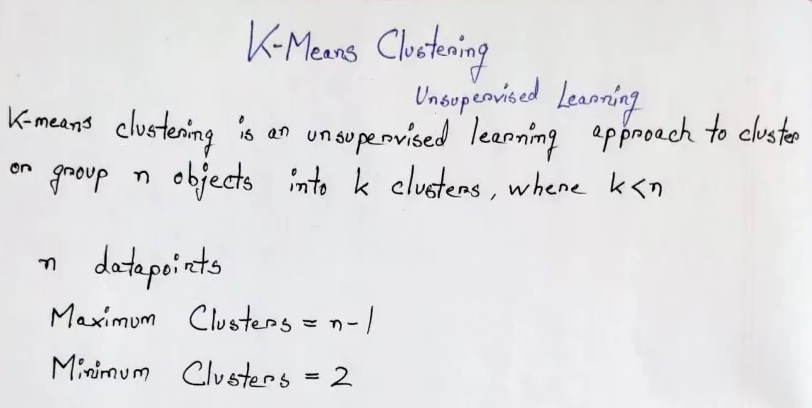 K-Means Clustering
Unsupervised Learning
K-means clustering is an unsupervised learning approach to cluster
or group n objects into k clusters, where k<n
n datapoints
Maximum Clusters = n-1
Minimum Clusters = 2